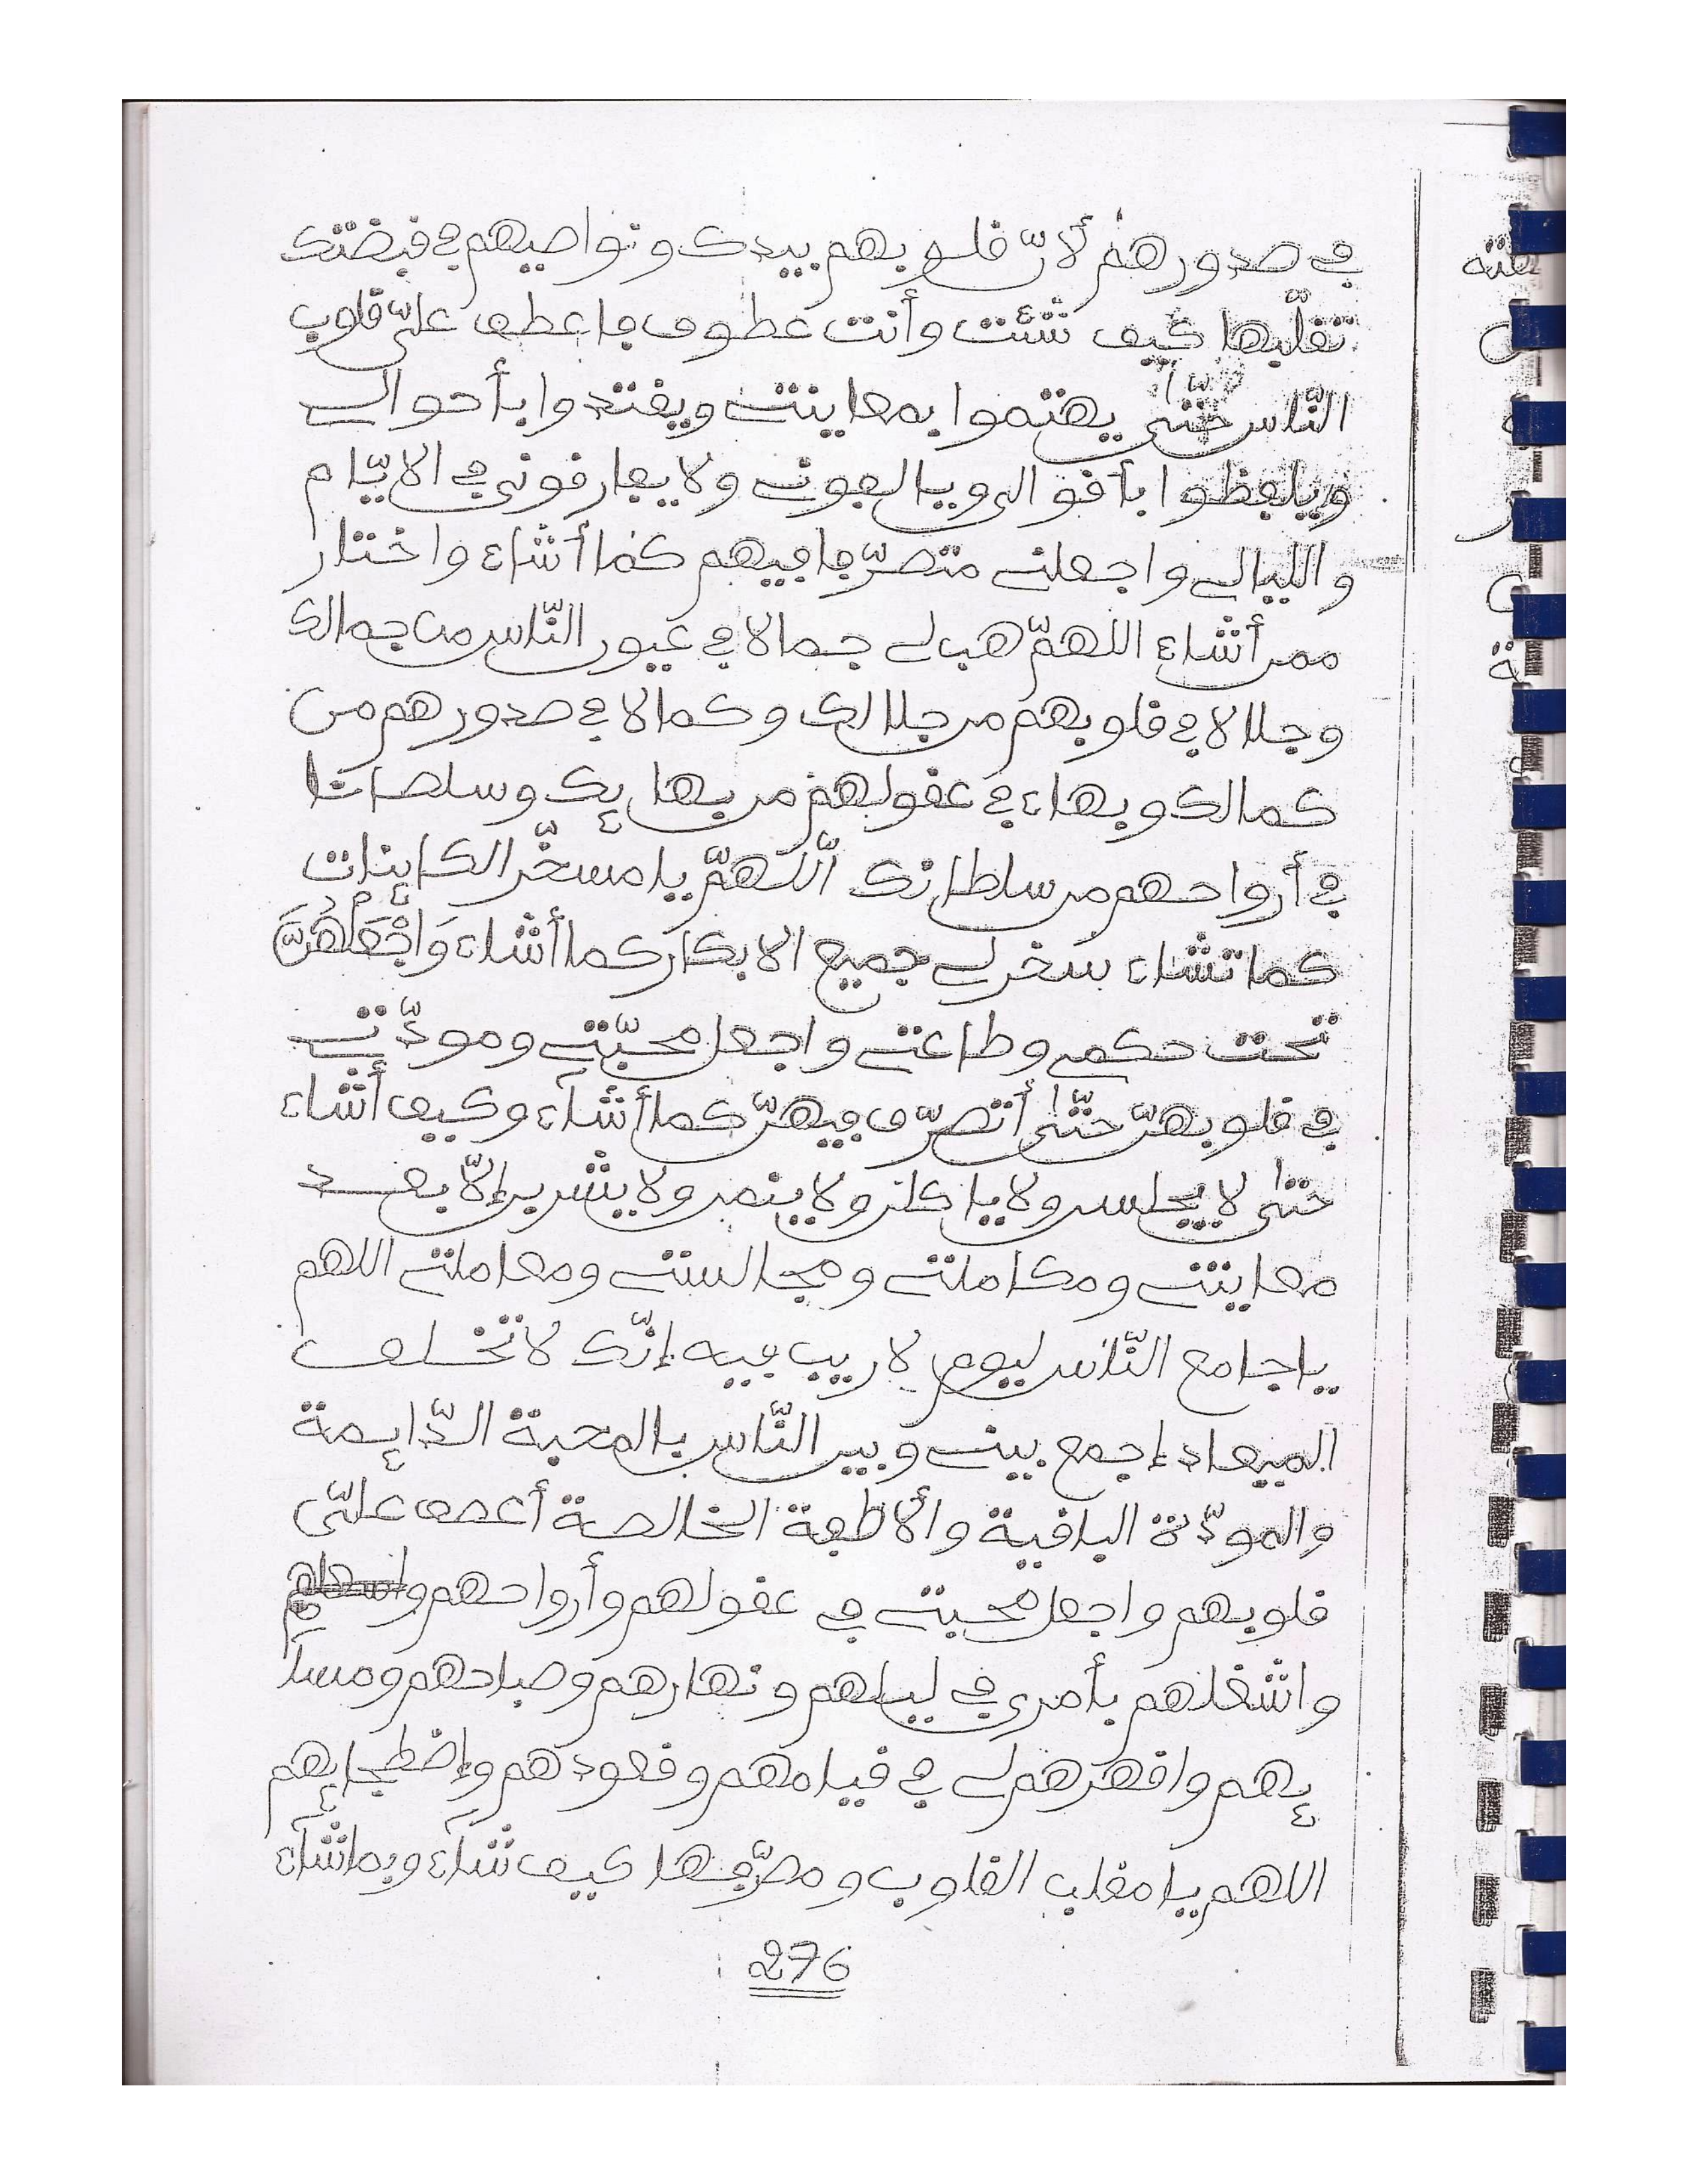 في صدورهم لأنّ قلوبهم بيدك ونواصيهم في قبضتك
تقلّبها كيف شئت وأنت عطوف فاعطف عليّ قلوب
النّاس حتّى يهتموا بمعاينتي ويقتدوا بأحوالي
ويلفظوا بأقوالي ويالفوني ولا يفارقوني في الايّام
والليالي واجعلني متصرّفا فيهم كما أشاء واختار
ممن أشاء اللهمّ هب لي جمالا في عيون النّاس من جمالك
وجلالا في قلوبهم من جلالك وكمالا في صدورهم من
كمالك وبهاء في عقولهم من بهايك وسلطانا
في أرواحهم من سلطانك اللهمّ يا مسخّر الكاينات
كما تشاء سخر لي جميع الابكار كما أشاء وَاجْعَلْهُنَّ
تحت حكمي وطاعتي واجعل محبّتي ومودّتي
في قلوبهنّ حتّى أتصرّف فيهنّ كما أشآء وكيف أشاء
حتى لا يجلسن ولا ياكلن ولا ينمن ولا يشربن إلاّ بعد
معاينتي ومكاملتي ومجالستي ومعاملتي اللهم
يا جامع النّاس ليوم لا ريب فيه إنّك لا تخلف
الميعاد إجمع بيني وبين النّاس بالمحبة الدّايمة
والمودّة الباقية والألفة الخالصة أعطف عليّ
قلوبهم واجعل محبتي في عقولهم وأرواحهم
واشغلهم بأمري في ليلهم ونهارهم وصباحهم ومسآ
يهم واقهرهم لي في قيامهم وقعودهم وإضطجايهم
اللهم يا مقلب القلوب ومصرّفها كيف شآء وبما شآء
276